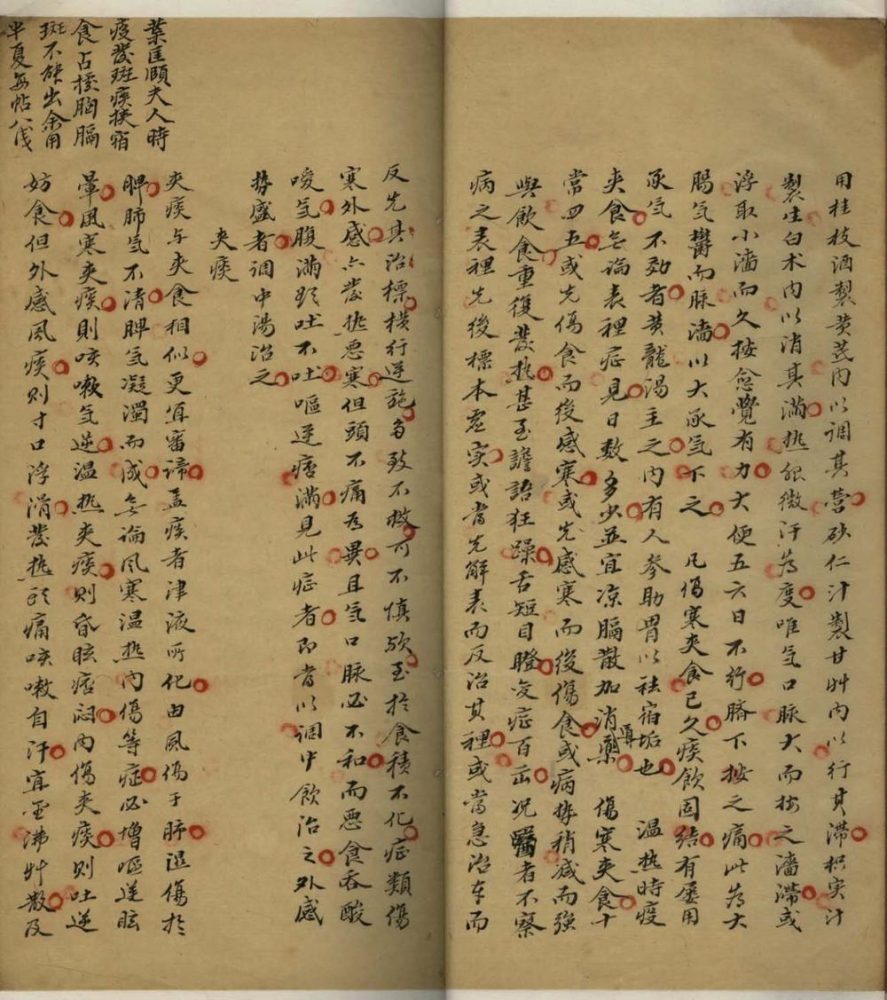 用桂枝酒製黄芪内以調其营砂仁汁製甘艸内以行其滞枳实汁
製生白术内以消其满热服微汗為度唯气口脉大而按之濇滞或
浮取小濇而久按愈覺有力大便五六日不行臍下按之痛此為大
腸气欝而脉濇以大承气下之 凡伤寒夾食已久痰飲固结有屡用
承气不効者黄龍湯主之内有人参助胃以祛宿垢也 温热時疫
夾食無論表裡症見日数多少並宜凉膈散加消導藥 傷寒夾食十
常四五或先傷食而後感寒或先感寒而後傷食或病势稍减而强
與飲食重復發热甚至譫語狂躁舌短目瞪变症百出况醫者不察
病之表裡先後標本虚实或當先解表而反治其裡或當急治本而
反先其治標横行逆施多致不救可不慎欤至於食積不化症類傷
寒外感亦發热恶寒但頭不痛為異且气口脉必不和而恶食吞酸
嗳气腹满欲吐不吐嘔逆痞满見此症者即當以調中飲治之外感
势盛者調中湯治之
夾痰
夾痰与夾食相似更宜審諦盖痰者津液所化由風傷于肺湿傷於
脾肺气不清脾气凝濁而成無論風寒温热内傷等症必增嘔逆眩
暈風寒夾痰則咳嗽气逆温热夾痰則昏眩痞闷内傷夾痰則吐逆
妨食但外感風痰則寸口浮滑發热頭痛咳嗽自汗宜金沸艸散及
葉匡頤夫人時
疫發斑痰挟宿
食占据胸膈
斑不能出余用
半夏每帖八浅